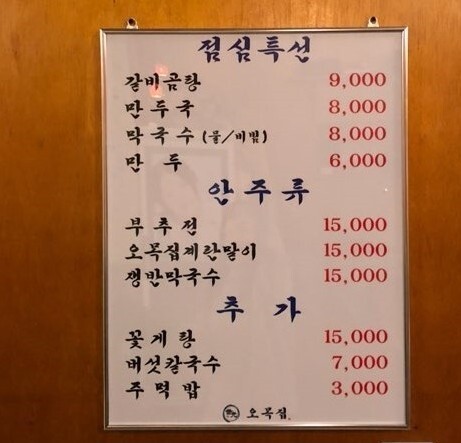 점심특선
갈비곰탕 9,000
만두국 8,000
막국수 (물/비빔) 8,000
만 두 6,000
안주류
부추전 15,000
오목집계란말이 15,000
쟁반막국수 15,000
추 가
꽃게탕 15,000
버섯칼국수 7,000
주먹밥 3,000
오목집